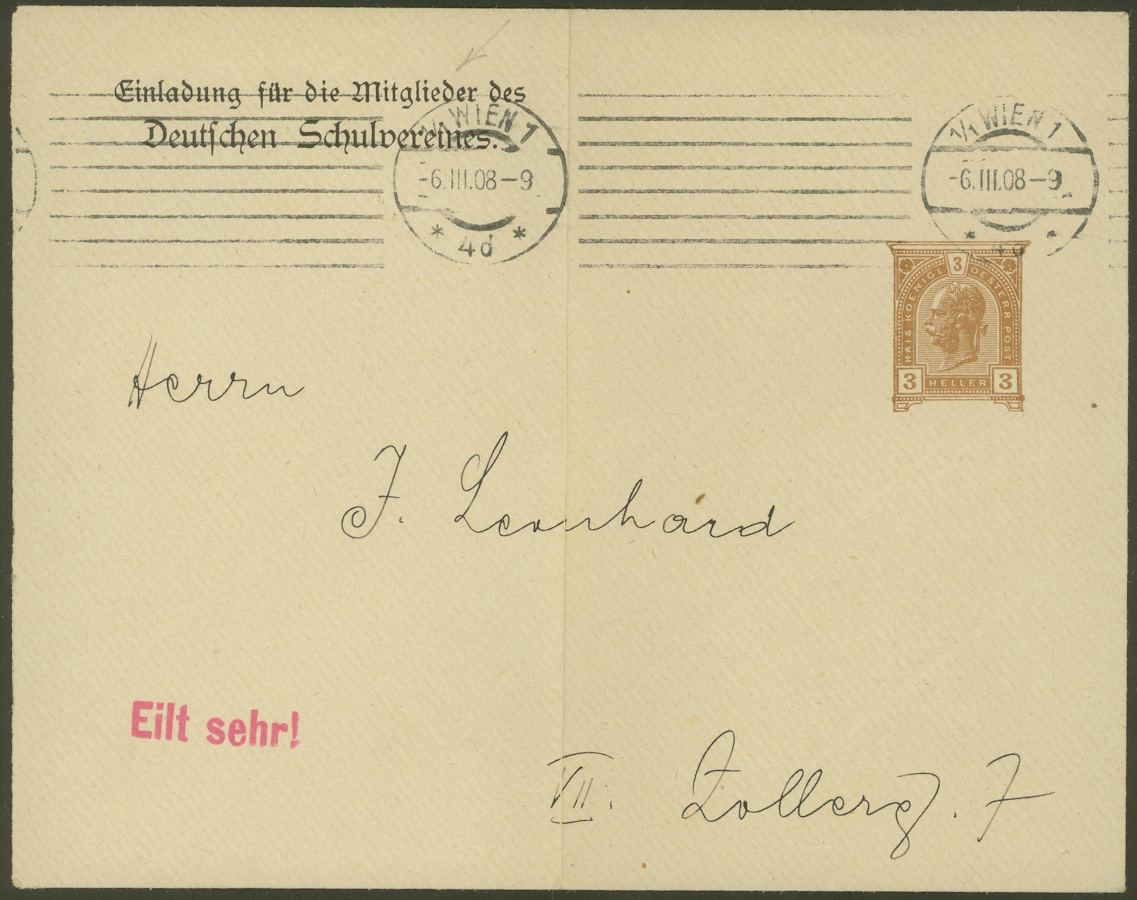 Einladung für die Mitglieder des
Deutschen Schulvereines.
1/1 WIEN 1
-6.III.08-9
* 4d *
1/1 WIEN 1
-6.III.08-9
* 4d *
3
KAIS. KOENIGL. OESTERR. POST
3 HELLER 3
Herrn
J. Leonhard
Eilt sehr!
VII. Zollerg. 7